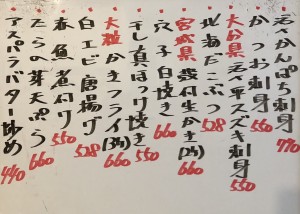 活〆かんぱち刺身 770
かつお刺身 550
大分県 活〆平スズキ刺身 550
北海だこぶつ 528
宮城県産生かき(3ヶ) 660
穴子白焼き 660
干し真ほっけ焼き 550
大粒かきフライ(3ヶ) 660
白エビ唐揚げ 528
春魚煮付け 550
たらの芽天ぷら 660
アスパラバター炒め 490